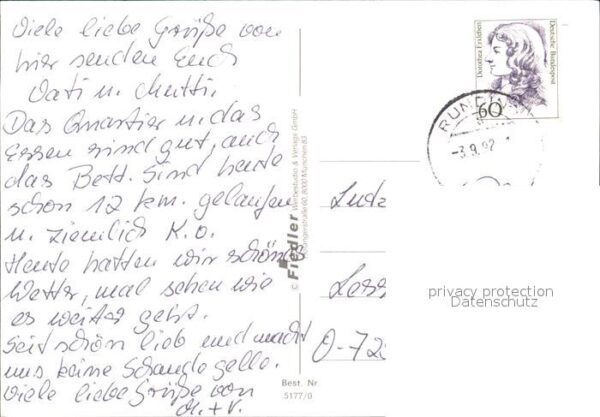 Viele liebe Grüße von
hier senden Euch
Vati u. Mutti.
Das Quartier u. das
Essen sind gut, auch
das Bett. Sind heute
schon 12 km. gelaufen
u. ziemlich K.o.
Heute hatten wir schönes
Wetter, mal sehen wie
es weiter geht.
Seit schön lieb und macht
uns keine Schande gelle.
Viele liebe Grüße von
M. + V.
© Fiedler Werbestudio & Verlags GmbH
60, 8000 München 83
Best. Nr.
5177/G
Dorothea Erxleben
Deutsche Bundespost
60
-3.9.92
privacy protection
Datenschutz
O-72